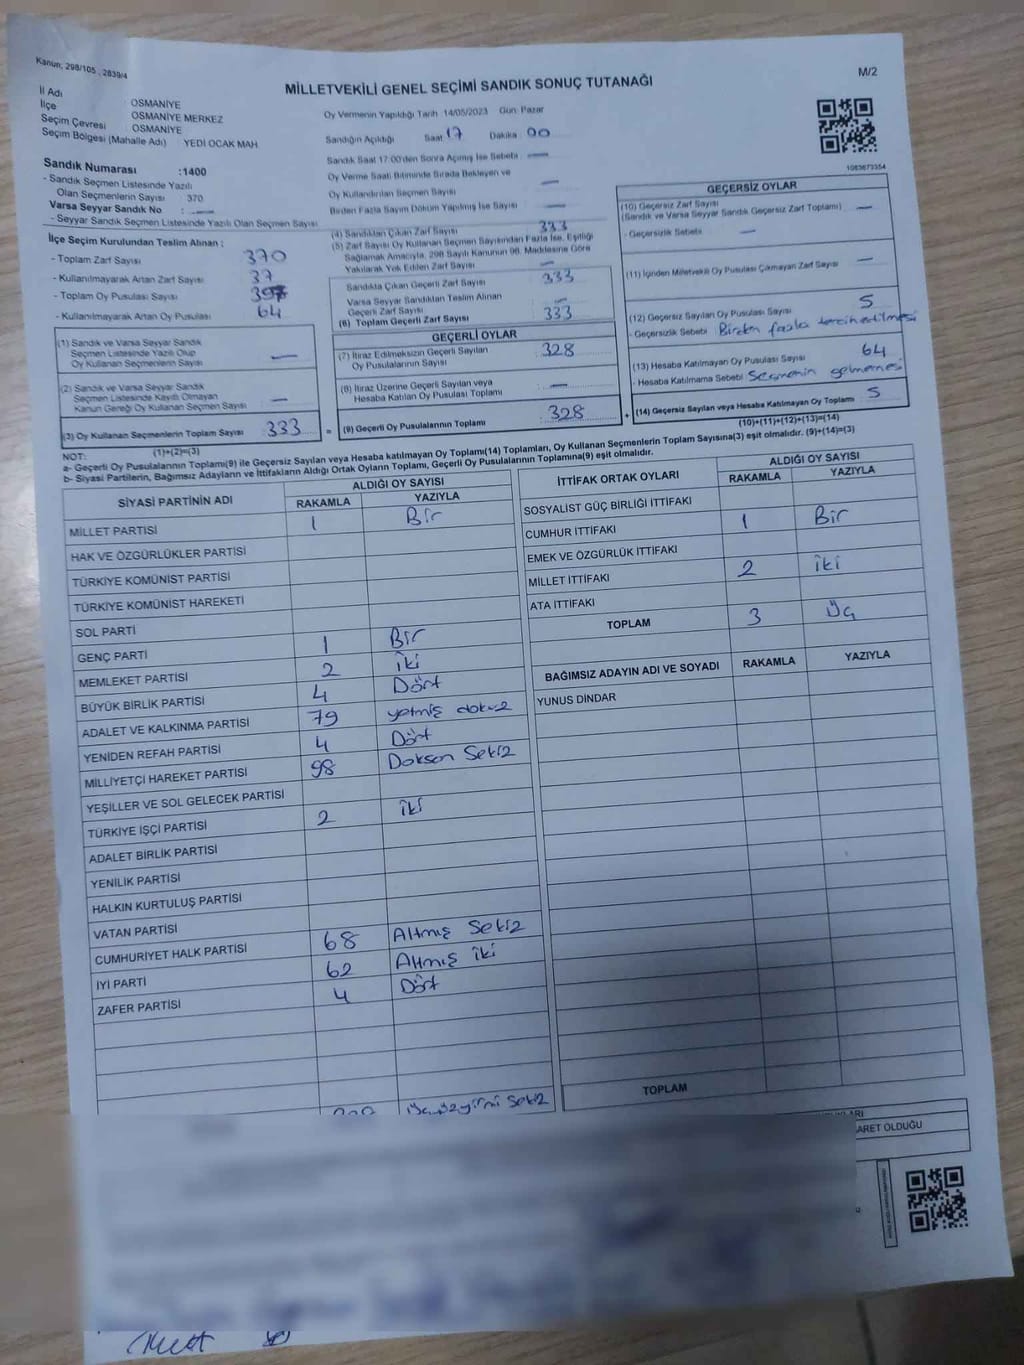 Kanun, 298/105 , 2839/4
M/2
MİLLETVEKİLİ GENEL SEÇİMİ SANDIK SONUÇ TUTANAĞI
İl Adı OSMANİYE
İlçe OSMANİYE MERKEZ
Seçim Çevresi OSMANİYE
Seçim Bölgesi (Mahalle Adı) YEDİ OCAK MAH
Oy Vermenin Yapıldığı Tarih 14/05/2023 Gün: Pazar
Sandığın Açıldığı Saat 17 Dakika 00
Sandık Saat 17:00'den Sonra Açılmış İse Sebebi —
Oy Verme Saati Bitiminde Sırada Bekleyen ve
Oy Kullandırılan Seçmen Sayısı —
Birden Fazla Sayım Döküm Yapılmış İse Sayısı —
1083673354
Sandık Numarası :1400
- Sandık Seçmen Listesinde Yazılı
Olan Seçmenlerin Sayısı 370
Varsa Seyyar Sandık No : —
- Seyyar Sandık Seçmen Listesinde Yazılı Olan Seçmen Sayısı
İlçe Seçim Kurulundan Teslim Alınan :
- Toplam Zarf Sayısı 370
- Kullanılmayarak Artan Zarf Sayısı 37
- Toplam Oy Pusulası Sayısı
- Kullanılmayarak Artan Oy Pusulası 64
(1) Sandık ve Varsa Seyyar Sandık
Seçmen Listesinde Yazılı Olup
Oy Kullanan Seçmenlerin Sayısı —
(2) Sandık ve Varsa Seyyar Sandık
Seçmen Listesinde Kayıtlı Olmayan
Kanun Gereği Oy Kullanan Seçmen Sayısı —
(3) Oy Kullanan Seçmenlerin Toplam Sayısı 333
(1)+(2)=(3)
(4) Sandıktan Çıkan Zarf Sayısı 333
(5) Zarf Sayısı Oy Kullanan Seçmen Sayısından Fazla İse, Eşitliği
Sağlamak Amacıyla, 298 Sayılı Kanunun 98. Maddesine Göre
Yakılarak Yok Edilen Zarf Sayısı —
Sandıkta Çıkan Geçerli Zarf Sayısı 333
Varsa Seyyar Sandıktan Teslim Alınan
Geçerli Zarf Sayısı —
(6) Toplam Geçerli Zarf Sayısı 333
GEÇERLİ OYLAR
(7) İtiraz Edilmeksizin Geçerli Sayılan
Oy Pusulasının Sayısı 328
(8) İtiraz Üzerine Geçerli Sayılan veya
Hesaba Katılan Oy Pusulası Toplamı —
= (9) Geçerli Oy Pusulalarının Toplamı :328 +
GEÇERSİZ OYLAR
(10) Geçersiz Zarf Sayısı
(Sandık ve Varsa Seyyar Sandık Geçersiz Zarf Toplamı) —
- Geçersizlik Sebebi —
(11) İçinden Milletvekili Oy Pusulası Çıkmayan Zarf Sayısı —
(12) Geçersiz Sayılan Oy Pusulası Sayısı 5
- Geçersizlik Sebebi Birden fazla tercih edilmesi
(13) Hesaba Katılmayan Oy Pusulası Sayısı 64
- Hesaba Katılmama Sebebi Seçmenin gelmemesi
(14) Geçersiz Sayılan veya Hesaba Katılmayan Oy Toplamı 5
(10)+(11)+(12)+(13)=(14)
NOT:
a- Geçerli Oy Pusulalarının Toplamı(9) ile Geçersiz Sayılan veya Hesaba katılmayan Oy Toplamı(14) Toplamları, Oy Kullanan Seçmenlerin Toplam Sayısına(3) eşit olmalıdır. (9)+(14)=(3)
b- Siyasi Partilerin, Bağımsız Adayların ve İttifakların Aldığı Ortak Oyların Toplamı, Geçerli Oy Pusulalarının Toplamına(9) eşit olmalıdır.
SİYASİ PARTİNİN ADI ALDIĞI OY SAYISI
RAKAMLA YAZIYLA
MİLLET PARTİSİ 1 Bir
HAK VE ÖZGÜRLÜKLER PARTİSİ
TÜRKİYE KOMÜNİST PARTİSİ
TÜRKİYE KOMÜNİST HAREKETİ
SOL PARTİ
GENÇ PARTİ 1 Bir
MEMLEKET PARTİSİ 2 İki
BÜYÜK BİRLİK PARTİSİ 4 Dört
ADALET VE KALKINMA PARTİSİ 79 yetmiş dokuz
YENİDEN REFAH PARTİSİ 4 Dört
MİLLİYETÇİ HAREKET PARTİSİ 98 Doksan Sekiz
YEŞİLLER VE SOL GELECEK PARTİSİ
TÜRKİYE İŞÇİ PARTİSİ 2 İki
ADALET BİRLİK PARTİSİ
YENİLİK PARTİSİ
HALKIN KURTULUŞ PARTİSİ
VATAN PARTİSİ
CUMHURİYET HALK PARTİSİ 68 Altmış Sekiz
İYİ PARTİ 62 Altmış iki
ZAFER PARTİSİ 4 Dört
Üçyüzyirmi Sekiz
İTTİFAK ORTAK OYLARI ALDIĞI OY SAYISI
RAKAMLA YAZIYLA
SOSYALİST GÜÇ BİRLİĞİ İTTİFAKI
CUMHUR İTTİFAKI 1 Bir
EMEK VE ÖZGÜRLÜK İTTİFAKI
MİLLET İTTİFAKI 2 İki
ATA İTTİFAKI
TOPLAM 3 Üç
BAĞIMSIZ ADAYIN ADI VE SOYADI RAKAMLA YAZIYLA
YUNUS DİNDAR
TOPLAM
ARET OLDUĞU